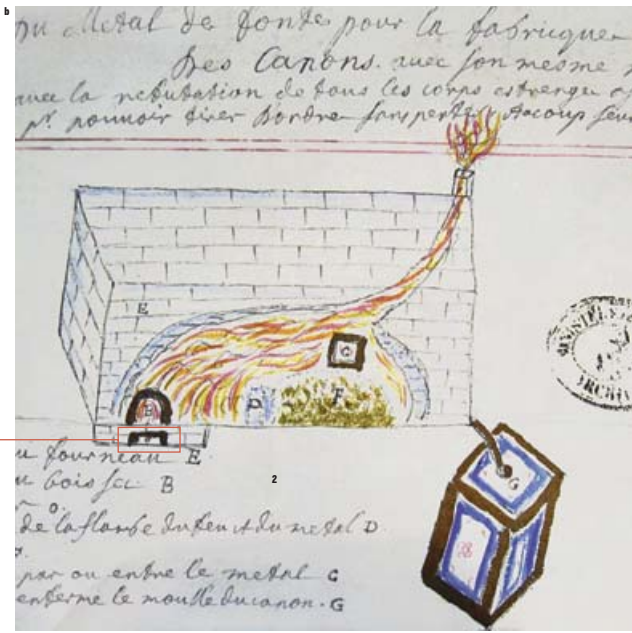 b
du Metal de fonte pour la fabrique
Des Canons. avec son mesme
avec la refutation de tous les corps estrenge
pr. pouvoir tirer Dordre sans perte Acoup seur
E
G
B
D
F
G
fourneau E
bois sec B
de la flambe du feu et du metal D
par ou entre le metal C
enferme le moulle du canon. G
2